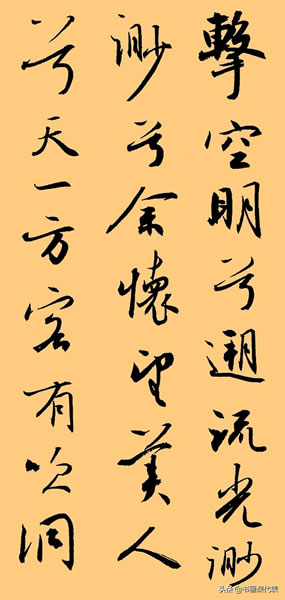 擊空明兮遡流光渺
渺兮余懷望美人
兮天一方客有吹洞
头条 @书画课代表